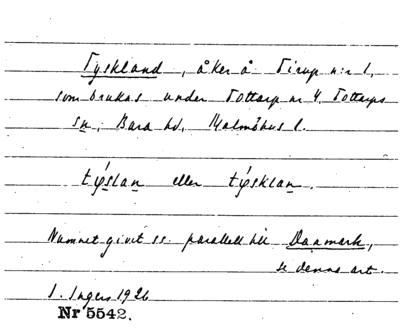 Tyskland, åker å Tirup nr 1,
som brukas under Tottarp nr 4, Tottarps
sn, Bara hd, Malmöhus l.
týslan eller týsklan.
Namnet givet ss. parallell till Danmark,
se denna art.
I. Ingers 1926
Nr 5542.